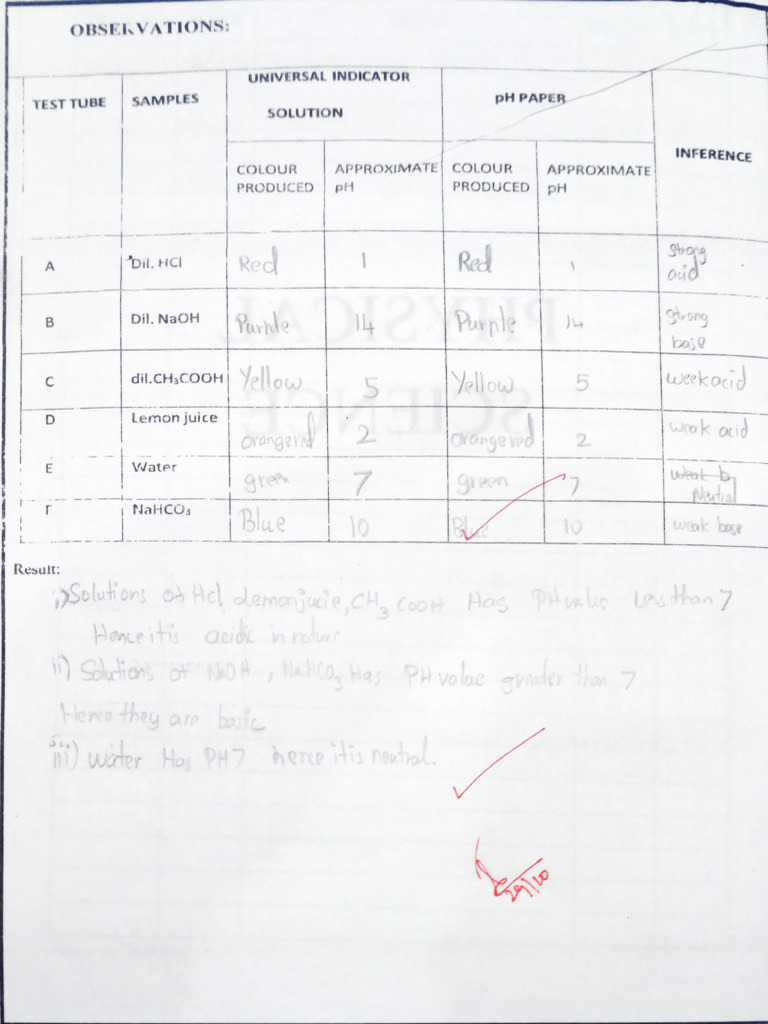 OBSERVATIONS:
TEST TUBE SAMPLES UNIVERSAL INDICATOR SOLUTION pH PAPER INFERENCE
COLOUR PRODUCED APPROXIMATE pH COLOUR PRODUCED APPROXIMATE pH
A Dil. HCl Red 1 Red 1 strong acid
B Dil. NaOH Purple 14 Purple 14 strong base
C dil.CH₃COOH Yellow 5 Yellow 5 week acid
D Lemon juice orangered 2 orangered 2 weak acid
E Water green 7 green 7 weak b Neutral
F NaHCO₃ Blue 10 Blue 10 weak base
Result:
i) Solutions of HCl, demonjucie, CH₃COOH Has PH value Less than 7
Hence it is acidic in nature
ii) Solutions of NaOH, NaHCO₃ Has PH value greater than 7
Hence they are basic
iii) water Has PH 7 hence it is neutral.
29/10
PHYSICAL
SCIENCE